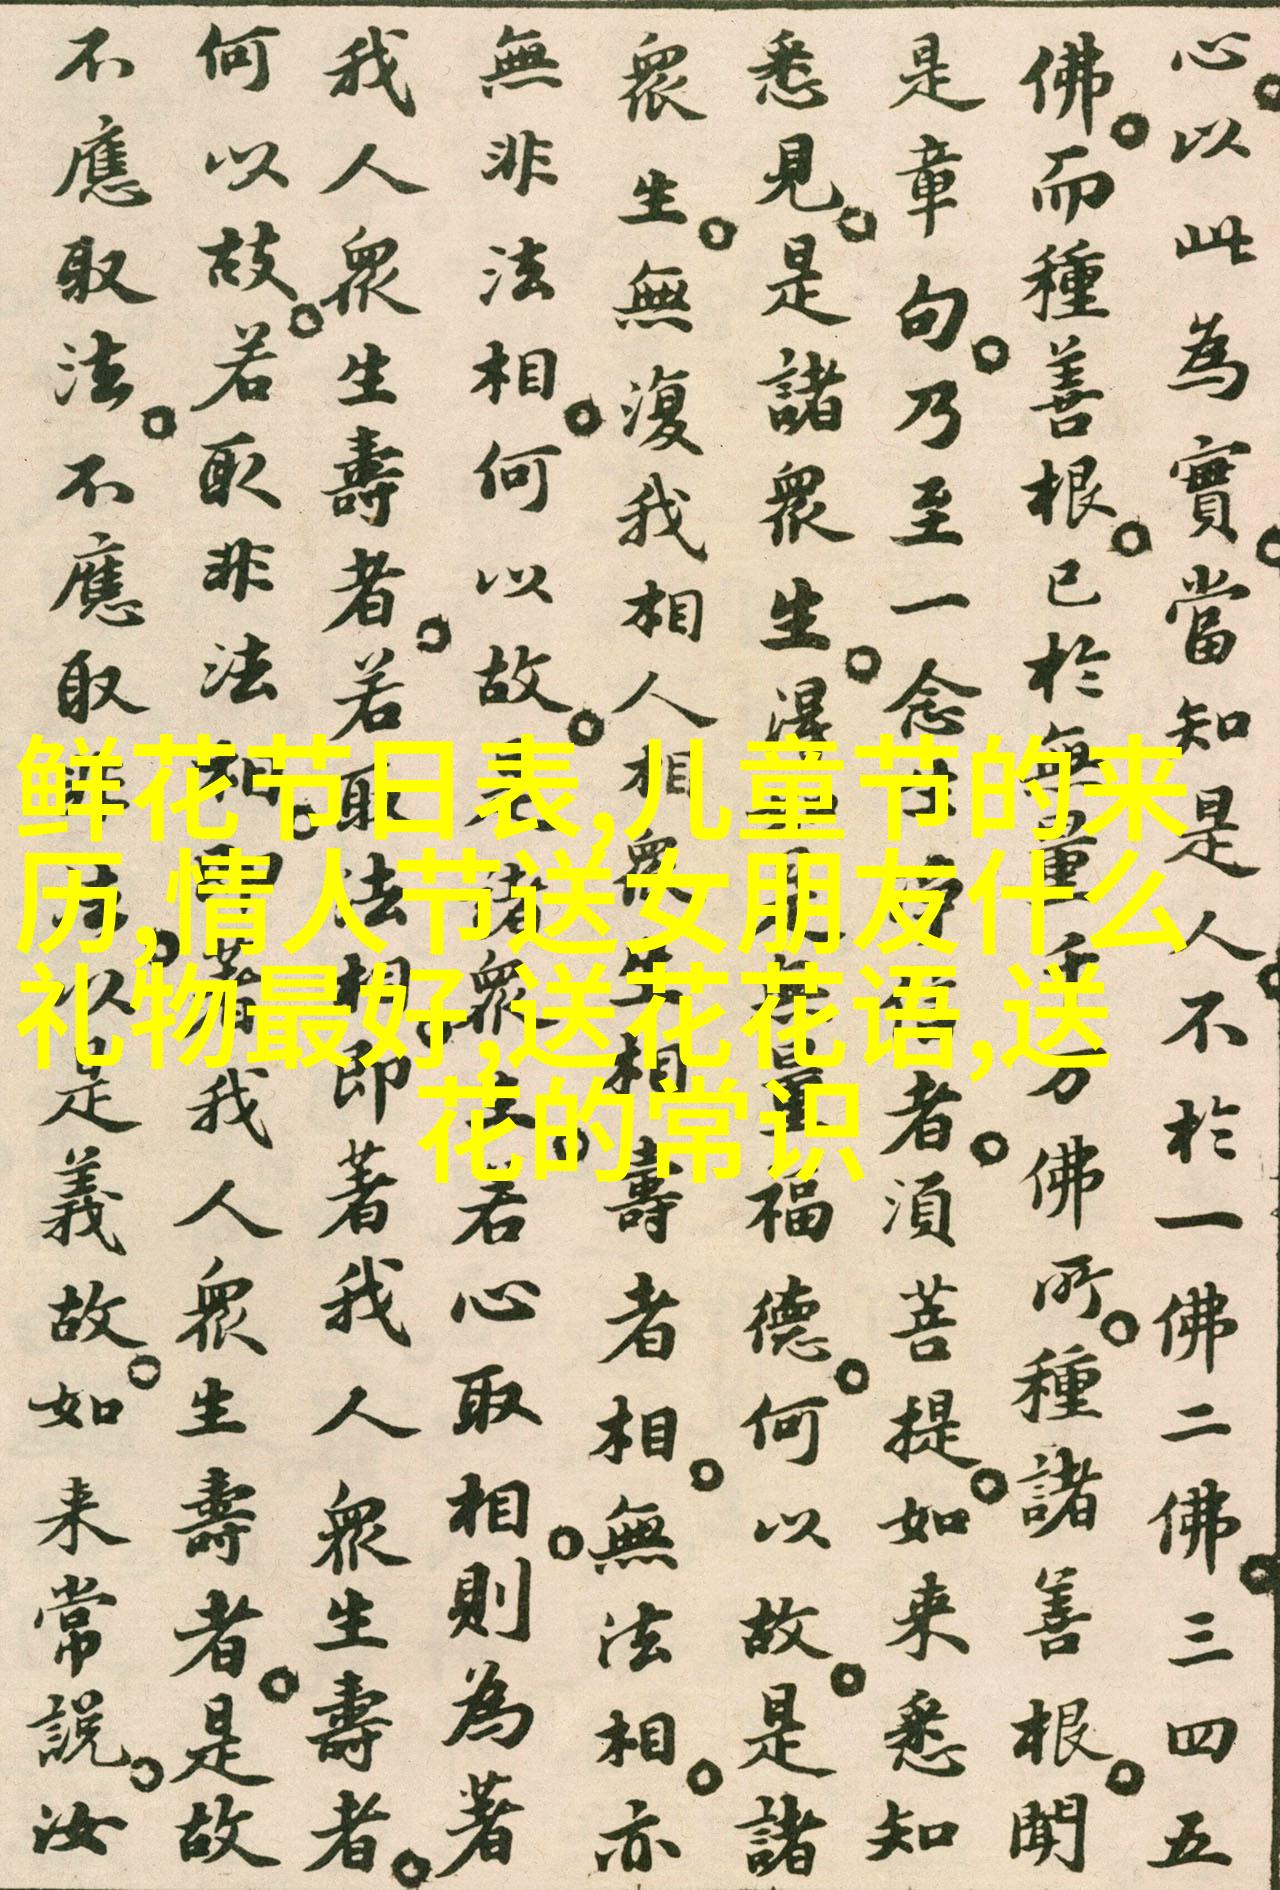 鲜花节日表,儿童节的来
历,情人节送女朋友什么
礼物最好,送花花语,送
花的常识
心。以此為實。當知是人。不於一佛二佛。三四五
佛。而種善根。已於無量千万佛所。種諸善根。聞
是章句。乃至一念生淨信者。須菩提。如来悉知
悉見。是諸衆生。得如是無量福德。何以故。是諸
衆生。無復我相人相衆生相壽者相。無法相。亦
無非法相。何以故。是諸衆生。若心取相。則為著
我人衆生壽者。若取法相。即著我人衆生壽者。
何以故。若取非法相。即著我人衆生壽者。是故
不應取法。不應取非法。以是義故。如来常說。汝